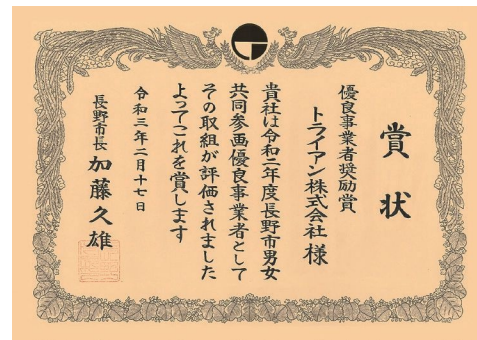 賞状
優良事業者奨励賞
トライアン株式会社 様
貴社は令和二年度長野市男女
共同参画優良事業者として
その取組が評価されました
よってこれを賞します
令和三年二月十七日
長野市長 加藤久雄